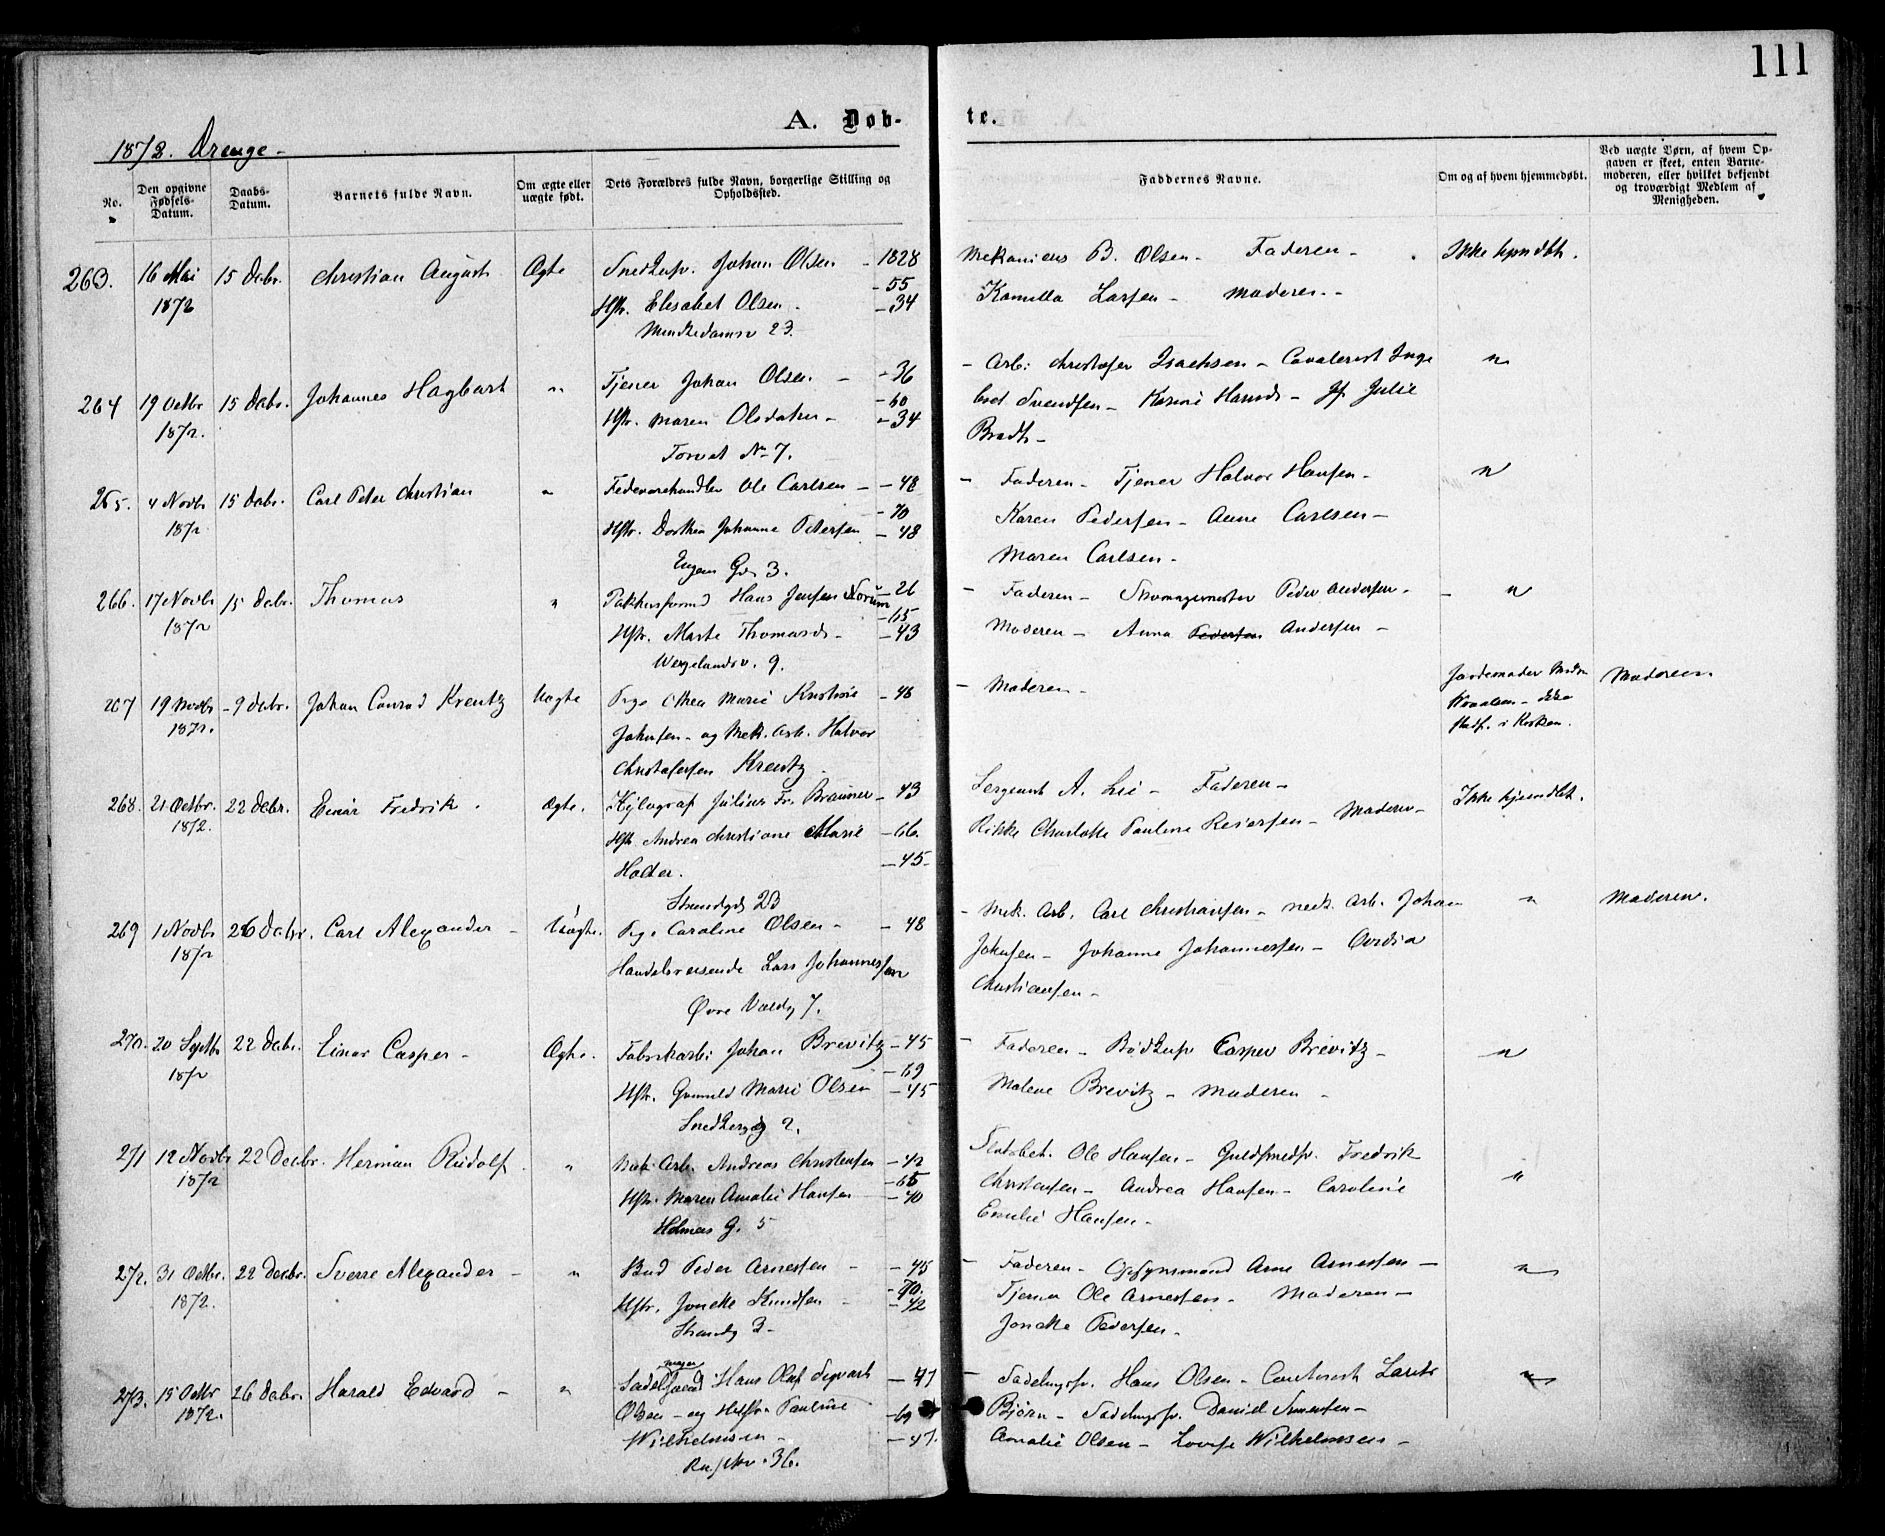 111
A. Døb-
te.
1872. Drenge -
No.
Den opgivne Fødsels-Datum.
Daabs-Datum.
Barnets fulde Navn.
Om ægte eller uægte født.
Dets Forældres fulde Navn, borgerlige Stilling og Opholdssted.
Faddernes Navne.
Om og af hvem hjemmedøbt.
Ved uægte Børn, af hvem Opgaven er skeet, enten Barnemoderen, eller hvilket bekjendt og troværdigt Medlem af Menigheden.
263. 16 Mai 15 Debr. Christian August Ægte Johan Olsen - 1828 B. Olsen - Faderen - Ikke hjmdbt.
1872 - 55
Hstr. Elisabet Olsen - - 34 Kamilla Larsen - Moderen -
23.
264 19 Octbr 15 Debr. Johannes Hagbart " Tjener Johan Olsen - - 36 - Arb: Isachsen - Inge "
1872. - 60
Hstr. Maren Olsdatter - - 34 Svendsen - Julie
Torvet No 7.
265. 4 Novbr 15 Debr. Carl Peter Christian " Fedevarehandler Ole Carlsen - - 48 - Faderen - Tjener Halvor Hansen - "
1872 - 70
Hstr. Dorthea Johanne Petersen - 48 Karen Pedersen - Anne Carlsen -
3. Maren Carlsen -
266. 17 Novbr 15 Debr. Thomas " Hans Jensen Norum - 26 - Faderen - Skomagermester Peder Andersen - "
1872 - 65
Hstr. Marte Thomasd - - 43 Moderen - Anna Pedersen Andersen -
Wergelandsv. 9.
267 19 Novbr - 9 Debr. Johan Conrad Krentz Uægte Pige Thea Marie - 48 - Moderen - Jordemoder Moderen
1872. Johnsen - og Mek. Arb. Halvor i Kirken.
Christofersen Krentz
268. 21 Octbr. 22 Debr. Einar Fredrik. Ægte. Xylograf Julius Fr. - 43 Sergeant A. Lie - Faderen - Ikke hjemdbt.
1872. Hstr. Andrea Christiane Marie - 66. Rikke Charlotte Pauline - Moderen -
Holter. - 45
269 1 Novbr 26 Debr. Carl Alexander - Uægte. Pige Caroline Olsen - - 48 - Mek. Arb. Carl Christiansen - Mek. Arb. Johan " Moderen.
1872 Handelsreisende Lars Johannessen Johnsen - Johanne Johannessen -
Øvre 7. Christiansen -
270. 20 Septbr 22 Debr. Einar Casper - Ægte. Fabrikarb: Johan Brevitz - 45 - Faderen - Casper Brevitz - "
1872 - 69
Hstr. Marie Olsen - 45 Malene Brevitz - Moderen -
2.
271 12 Novbr 22 Decbr. Herman Rudolf. " Mek: Arb. Andreas Christensen - 42 Ole Hansen - Guldsmedsv. Fredrik "
1872 - 65
Hstr. Maren Amalie Hansen - 40 Christensen - Andrea Hansen - Caroline
Holmens G. 5 Emilie Hansen -
272. 31 Octbr. 22 Decbr. Sverre Alexander - " Bud Peder Arnesen - - 45 - Faderen - Opsynsmand Arne Arnesen - "
1872. - 70.
Hstr. Knudsen - - 42 Tjener Ole Arnesen - Moderen -
3 - Pedersen -
273. 15 Octbr 26 Debr. Harald Edvard - " Hans Olaf Sigvart - 47 - Hans Olsen - "
1872. Olsen - og Hustr. Pauline - 69 Bjørn - Daniel Simensen -
Wilhelmsen - - 47. Amalie Olsen - Lovise Wilhelmsen -
36.